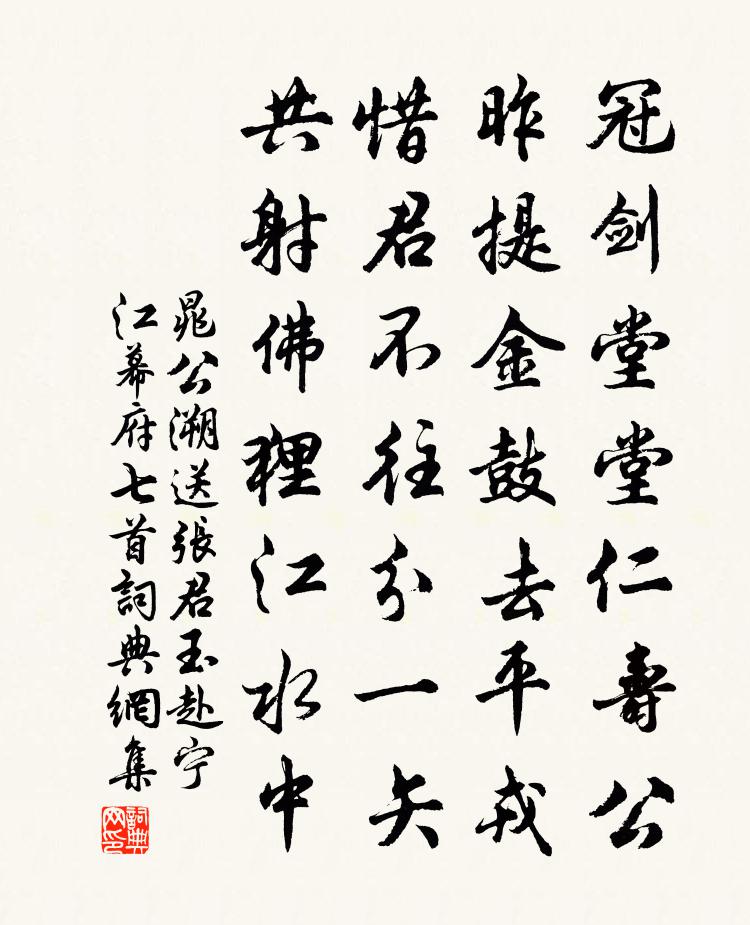 冠剑堂堂仁壽公
昨提金鼓去平戎
惜君不往分一矢
共射佛狸江水中
晁公溯送張君玉赴宁
江幕府七首詞典網集
詞典
网印